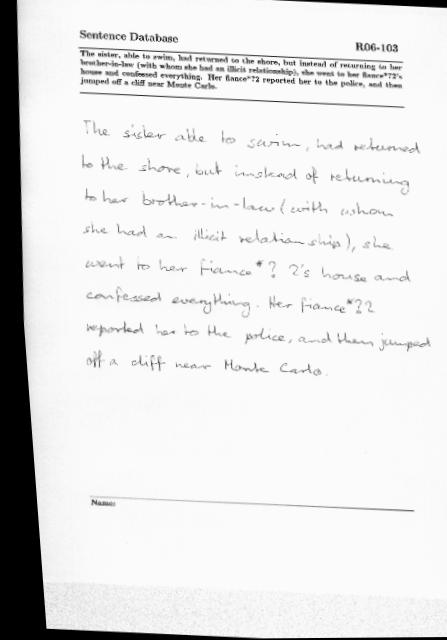 Sentence Database
R06-103
The sister, able to swim, had returned to the shore, but instead of returning to her
brother-in-law (with whom she had an illicit relationship), she went to her fiance*?2's
house and confessed everything. Her fiance*?2 reported her to the police, and then
jumped off a cliff near Monte Carlo.
The sister able to swim, had returned
to the shore, but instead of returning
to her brother-in-law (with whom
she had an illicit relationship), she
went to her fiance*? 2's house and
confessed everything. Her fiance*?2
reported her to the police, and then jumped
off a cliff near Monte Carlo.
Name: